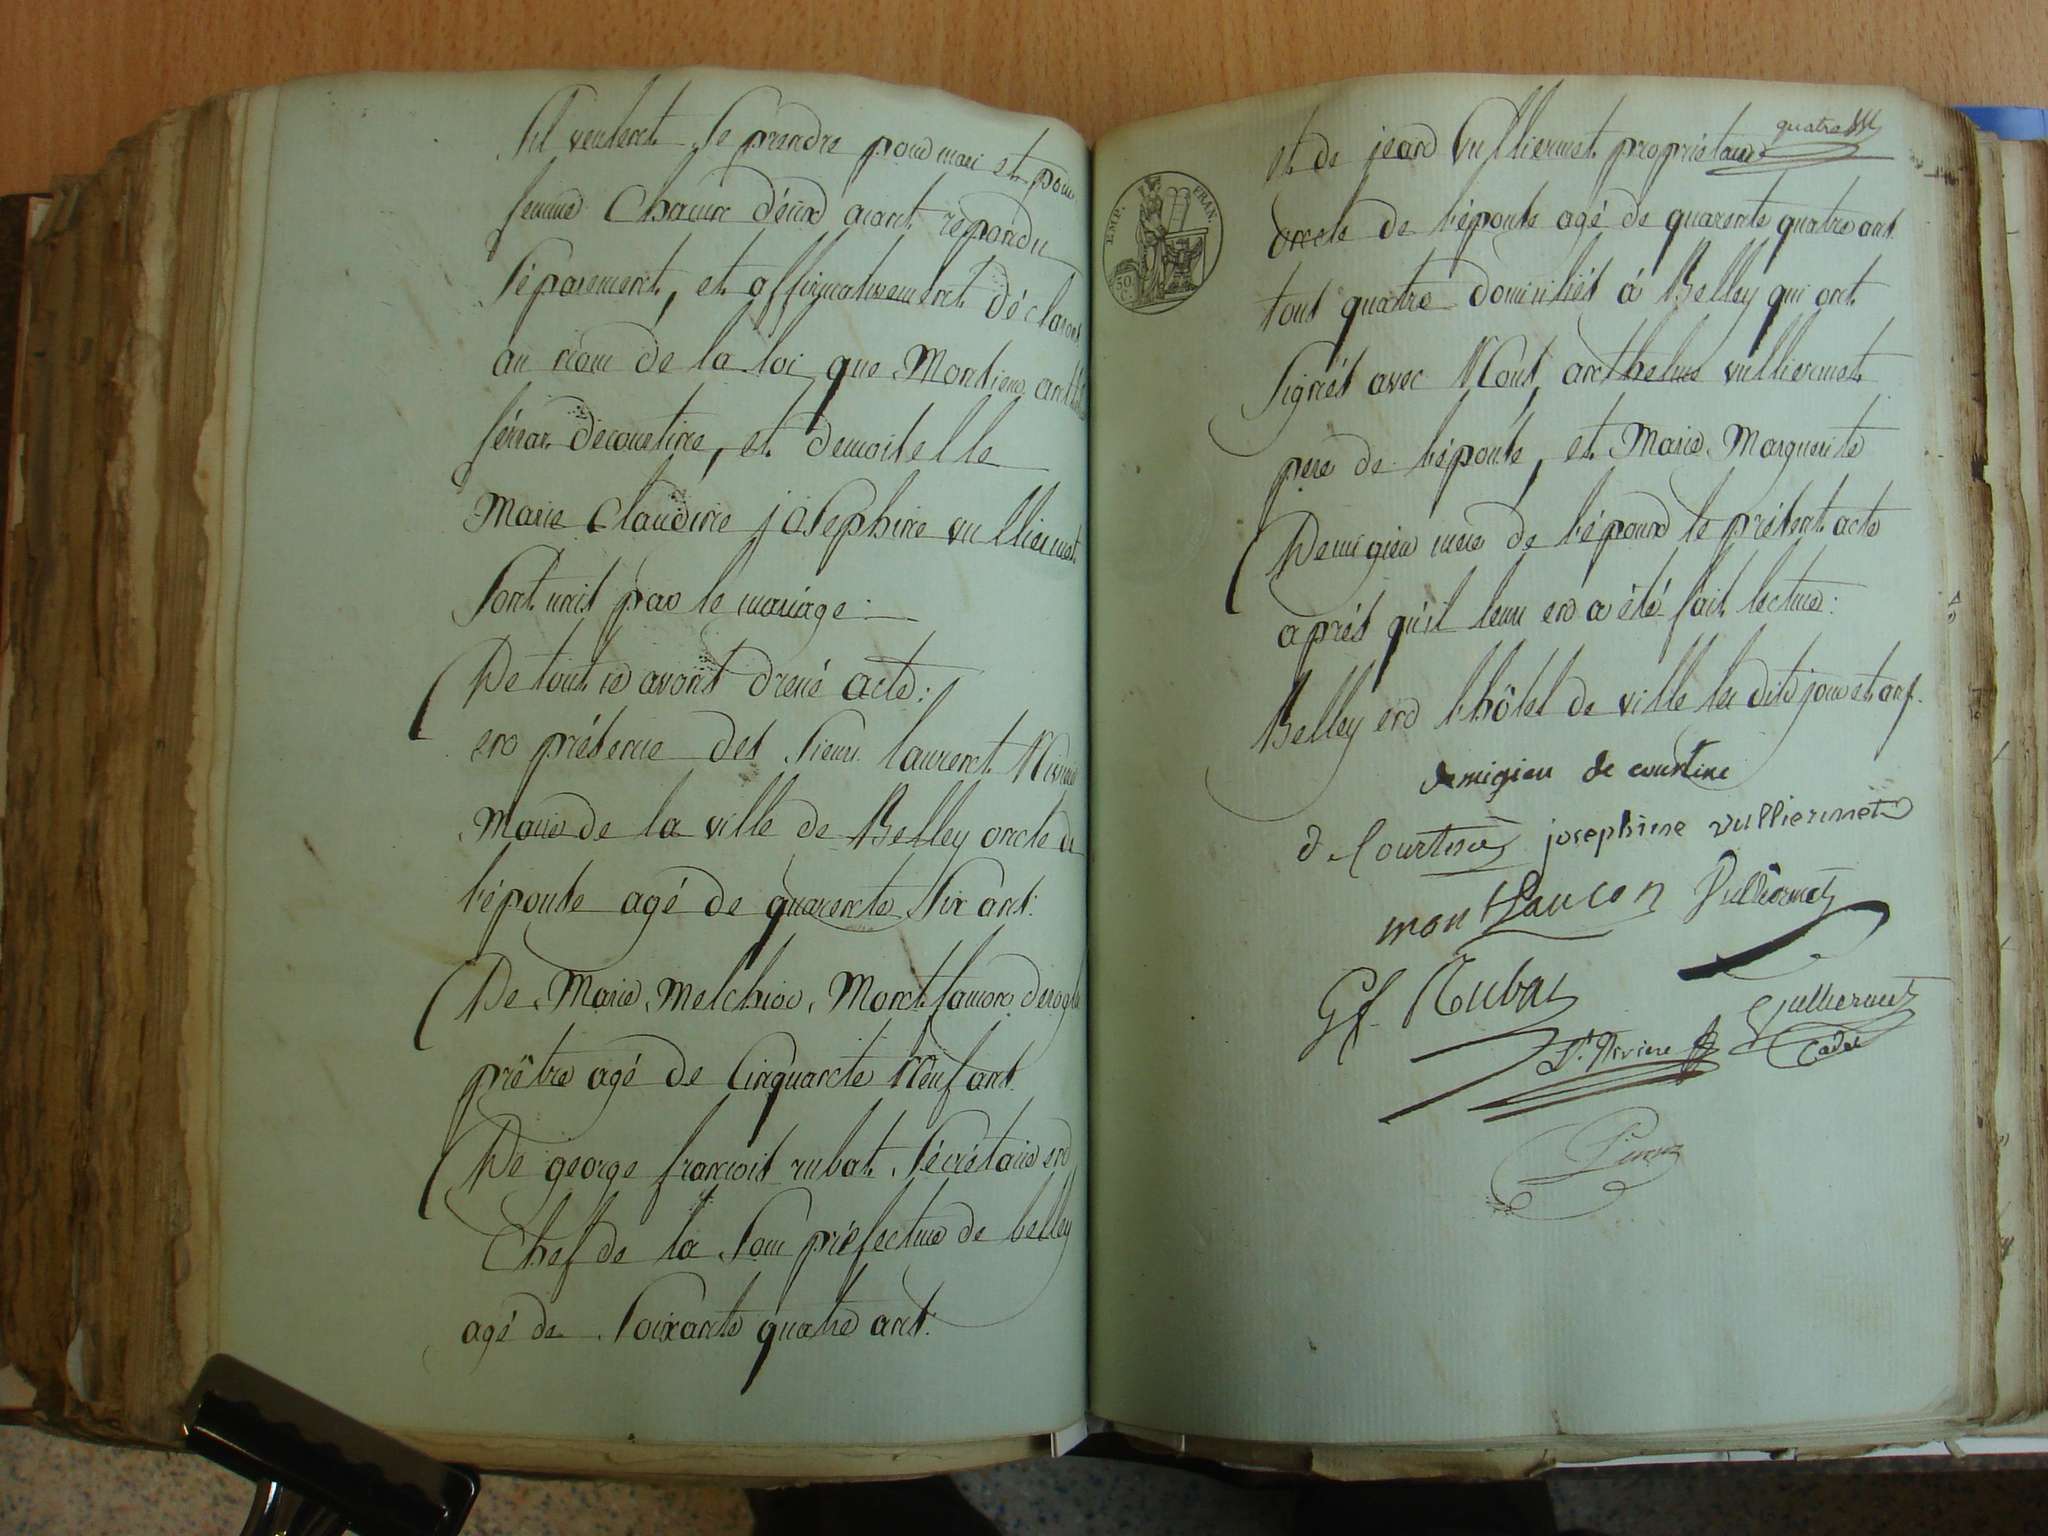 s'il veulent se prendre pour mari et pour
femme Chacun d'eux aiant répondu
séparement, et affirmativement déclarons
au nom de la loi que Monsieur
decourtine, et demoiselle
Marie Claudine josephine vulliermet
sont unis par le mariage :
De tout ce avons dressé acte :
en présence des sieurs laurent
Maire de la ville de Belley oncle de
l'épouse agé de quarente six ans :
De Marie Melchior Montfaucon
prêtre agé de Cinquante Neuf ans.
De george françois rubat sécrétaire en
Chef de la sous préfecture de belley
agé de soixante quatre ans.
quatre
et de jean vulliermet propriétaire
oncle de l'épouse agé de quarente quatre ans
tous quatre domiciliés à Belley qui ont
signés avec Nous, anthelme vulliermet
pere de l'épouse, et Marie Marguerite
Demigieu mere de l'époux le présent acte
après qu'il leur en a été fait lecture :
Belley en l'hôtel de ville les dits jour et an
EMP. FRAN.
50
C.
demigieu de courtine
de Courtine josephine vulliermet
montfaucon Vulliermet
Gf. Rubat
Vulliermet
cadet